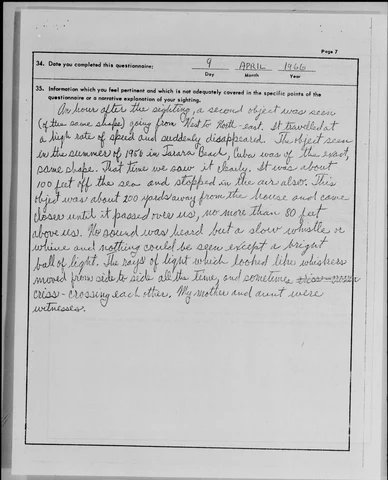 Page 7
34. Date you completed this questionnaire: 9 APRIL 1966
Day Month Year
35. Information which you feel pertinent and which is not adequately covered in the specific points of the
questionnaire or a narrative explanation of your sighting.
An hour after the sighting, a second object was seen
(of the same shape) going from West to North-east. It travelled at
a high rate of speed and suddenly disappeared. The object seen
in the summer of 1956 in Tarara Beach, Cuba was of the exact,
same shape. That time we saw it clearly. It was about
100 feet off the sea and stopped in the air also. This
object was about 200 yards away from the house and came
closer until it passed over us, no more than 80 feet
above us. No sound was heard but a slow whistle or
whine and nothing could be seen except a bright
ball of light. The rays of light which looked like whiskers
moved from side to side all the time, and sometimes
criss-crossing each other. My mother and aunt were
witnesses.